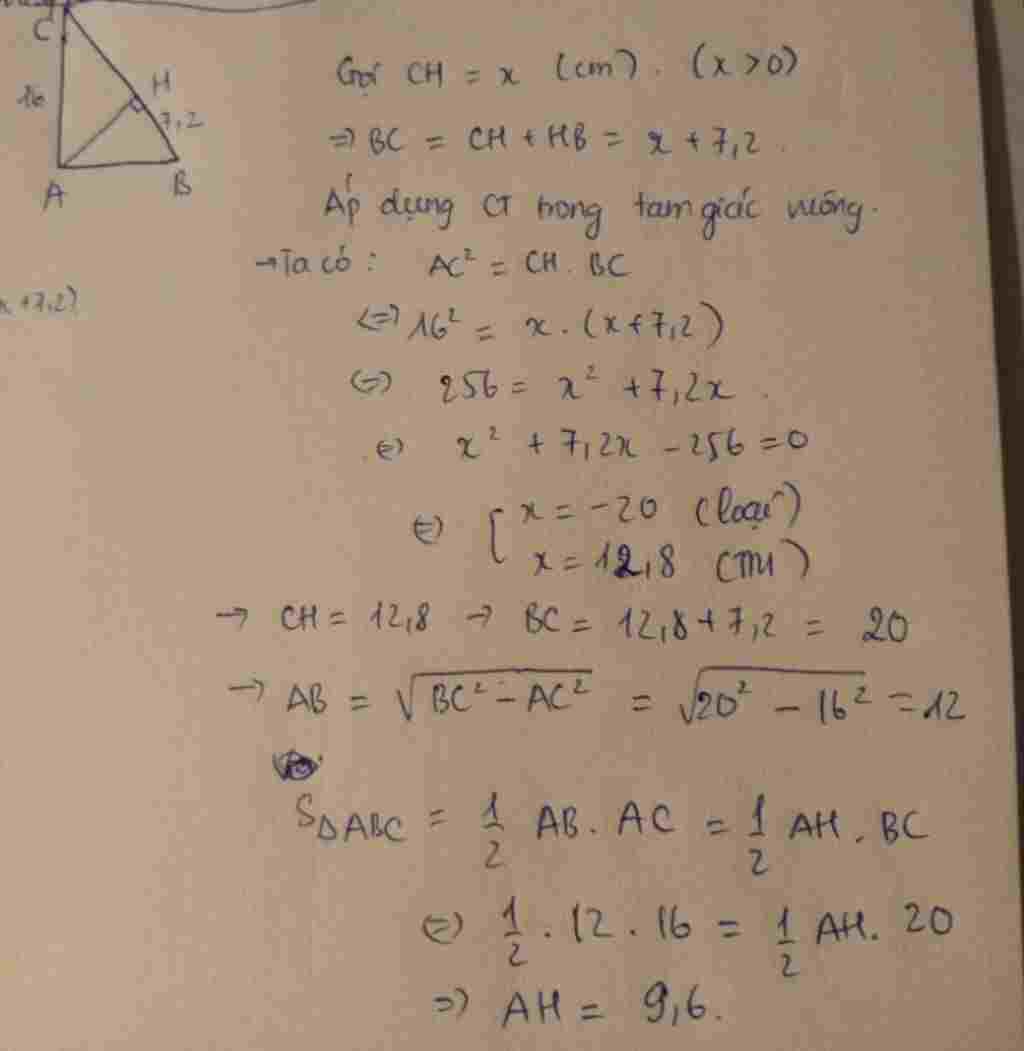 C
16
H
7,2
A
B
Gọi CH = x (cm). (x > 0)
=> BC = CH + HB = x + 7,2.
Áp dụng CT trong tam giác vuông.
→ Ta có : AC² = CH. BC
x + 7,2)
<=> 16² = x . (x + 7,2)
<=> 256 = x² + 7,2x.
<=> x² + 7,2x - 256 = 0
<=> [ x = -20 (loại)
x = 12,8 (TM)
→ CH = 12,8 → BC = 12,8 + 7,2 = 20
→ AB = √(BC² - AC²) = √(20² - 16²) = 12
S△ABC = 1/2 AB. AC = 1/2 AH. BC
<=> 1/2 . 12 . 16 = 1/2 AH. 20
=> AH = 9,6.